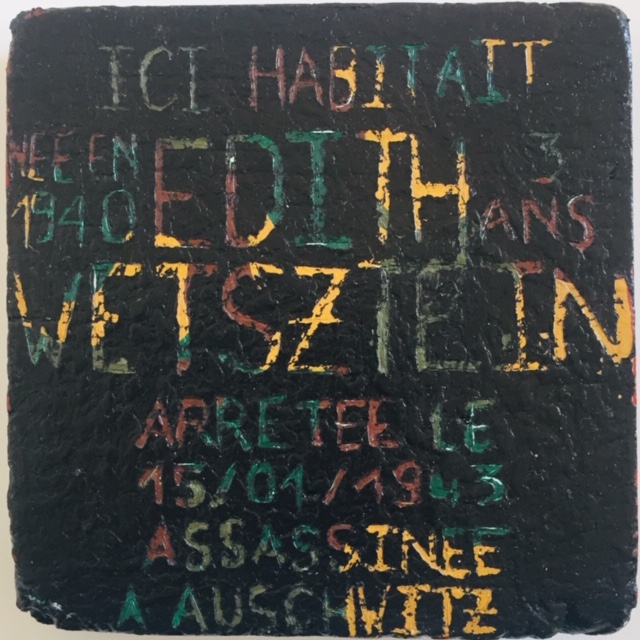 ICI HABITAIT
NEE EN
1940
EDITH
3
ANS
WETSZTEIN
ARRETEE LE
15/01/1943
ASSASSINEE
A AUSCHWITZ